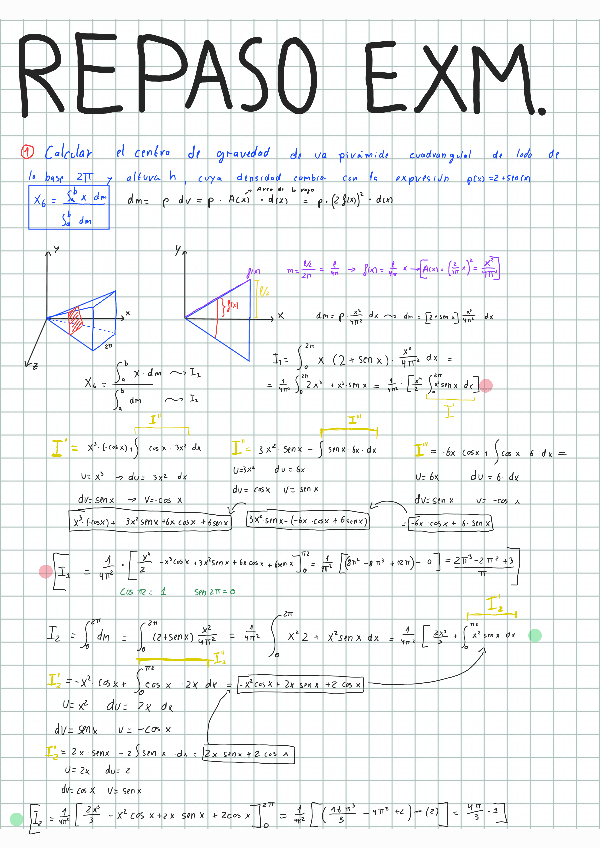 REPASO EXM.
① Calcular el centro de gravedad de una pirámide cuadrangular de lado de
la base 2π y altura h, cuya densidad cambia con la expresión ρ(x)=2+sen(x)
X_G = ∫_a^b x dm / ∫_a^b dm
dm = ρ dv = ρ · A(x) · d(x) = ρ·(2f(x))² · d(x)
y
x
z
2π
y
x
f(x)
f(x)
l/2
m = l/2 / 2π = l/4π → f(x) = l/4π x →
dm = ρ · x²/4π² dx ⇝ dm = [2+sen x] x²/4π² dx
X_G = ∫_a^b x·dm / ∫_a^b dm
I₁ = ∫_0^2π x (2+senx) · x²/4π² dx =
= 1/4π² ∫_0^2π 2x³ + x³·sen x = 1/4π² · [x⁴/2 ∫_0^2π x³senx dx]
I'
I''
I' = x³·(-cosx) + ∫ cosx · 3x² dx
u = x³ → du = 3x² dx
dv = senx → v = -cos x
I'''
I'' = 3x² senx - ∫ senx 6x · dx
u = 3x² du = 6x
dv = cosx v = senx
I''' = -6x cosx + ∫ cosx 6 dx =
u = 6x du = 6 dx
dv = senx v = -cosx
x³·(-cosx) + 3x² senx + 6x cosx + 6senx
3x² senx - (-6x · cosx + 6senx)
= -6x cosx + 6·senx
cos π2 = 1 sen 2π = 0
I₂'
I₂ = ∫_0^2π dm = ∫_0^2π (2+senx) x²/4π² = 1/4π² ∫_0^2π x² 2 + x² senx dx = 1/4π² [2x³/3 + ∫_0^π2 x² senx dx
I₂'
I₂' = -x² · cosx + ∫_0^π2 cosx 2x dx = -x² cosx + 2x senx + 2 cosx
u = x² du = 2x dx
dv = senx v = -cosx
I₂'' = 2x · senx - 2∫ senx dx = 2x senx + 2 cosx
u = 2x du = 2
dv = cosx v = senx
I₂ = 1/4π² [2x³/3 - x² cosx + 2x senx + 2cosx]_0^2π = 1/4π² [(16π³/3 - 4π² + 2) - (2)] = [4π/3 - 1]